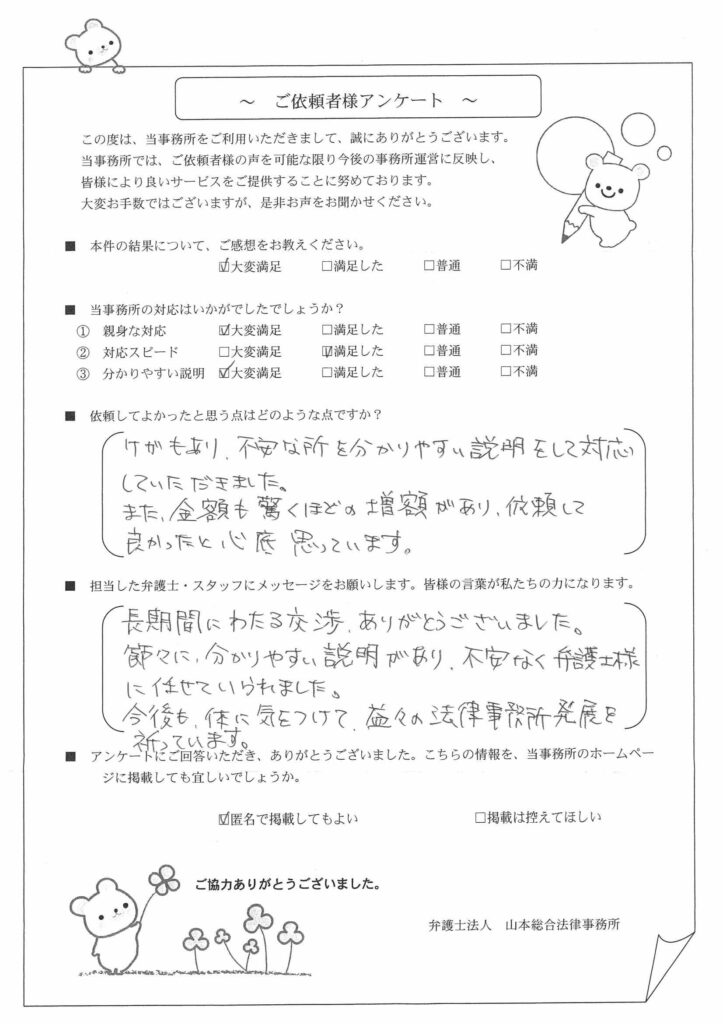 ～　ご依頼者様アンケート　～
この度は、当事務所をご利用いただきまして、誠にありがとうございます。
当事務所では、ご依頼者様の声を可能な限り今後の事務所運営に反映し、
皆様により良いサービスをご提供することに努めております。
大変お手数ではございますが、是非お声をお聞かせください。
■　本件の結果について、ご感想をお教えください。
☑大変満足　□満足した　□普通　□不満
■　当事務所の対応はいかがでしたでしょうか？
①　親身な対応　☑大変満足　□満足した　□普通　□不満
②　対応スピード　□大変満足　☑満足した　□普通　□不満
③　分かりやすい説明　☑大変満足　□満足した　□普通　□不満
■　依頼してよかったと思う点はどのような点ですか？
けがもあり、不安な所を分かりやすい説明をして対応
していただきました。
また、金額も驚くほどの増額があり、依頼して
良かったと心底思っています。
■　担当した弁護士・スタッフにメッセージをお願いします。皆様の言葉が私たちの力になります。
長期間にわたる交渉、ありがとうございました。
節々に、分かりやすい説明があり、不安なく弁護士様
に任せていられました。
今後も、体に気をつけて、益々の法律事務所発展を
祈っています。
■　アンケートにご回答いただき、ありがとうございました。こちらの情報を、当事務所のホームペー
ジに掲載しても宜しいでしょうか。
☑匿名で掲載してもよい　□掲載は控えてほしい
ご協力ありがとうございました。
弁護士法人　山本総合法律事務所